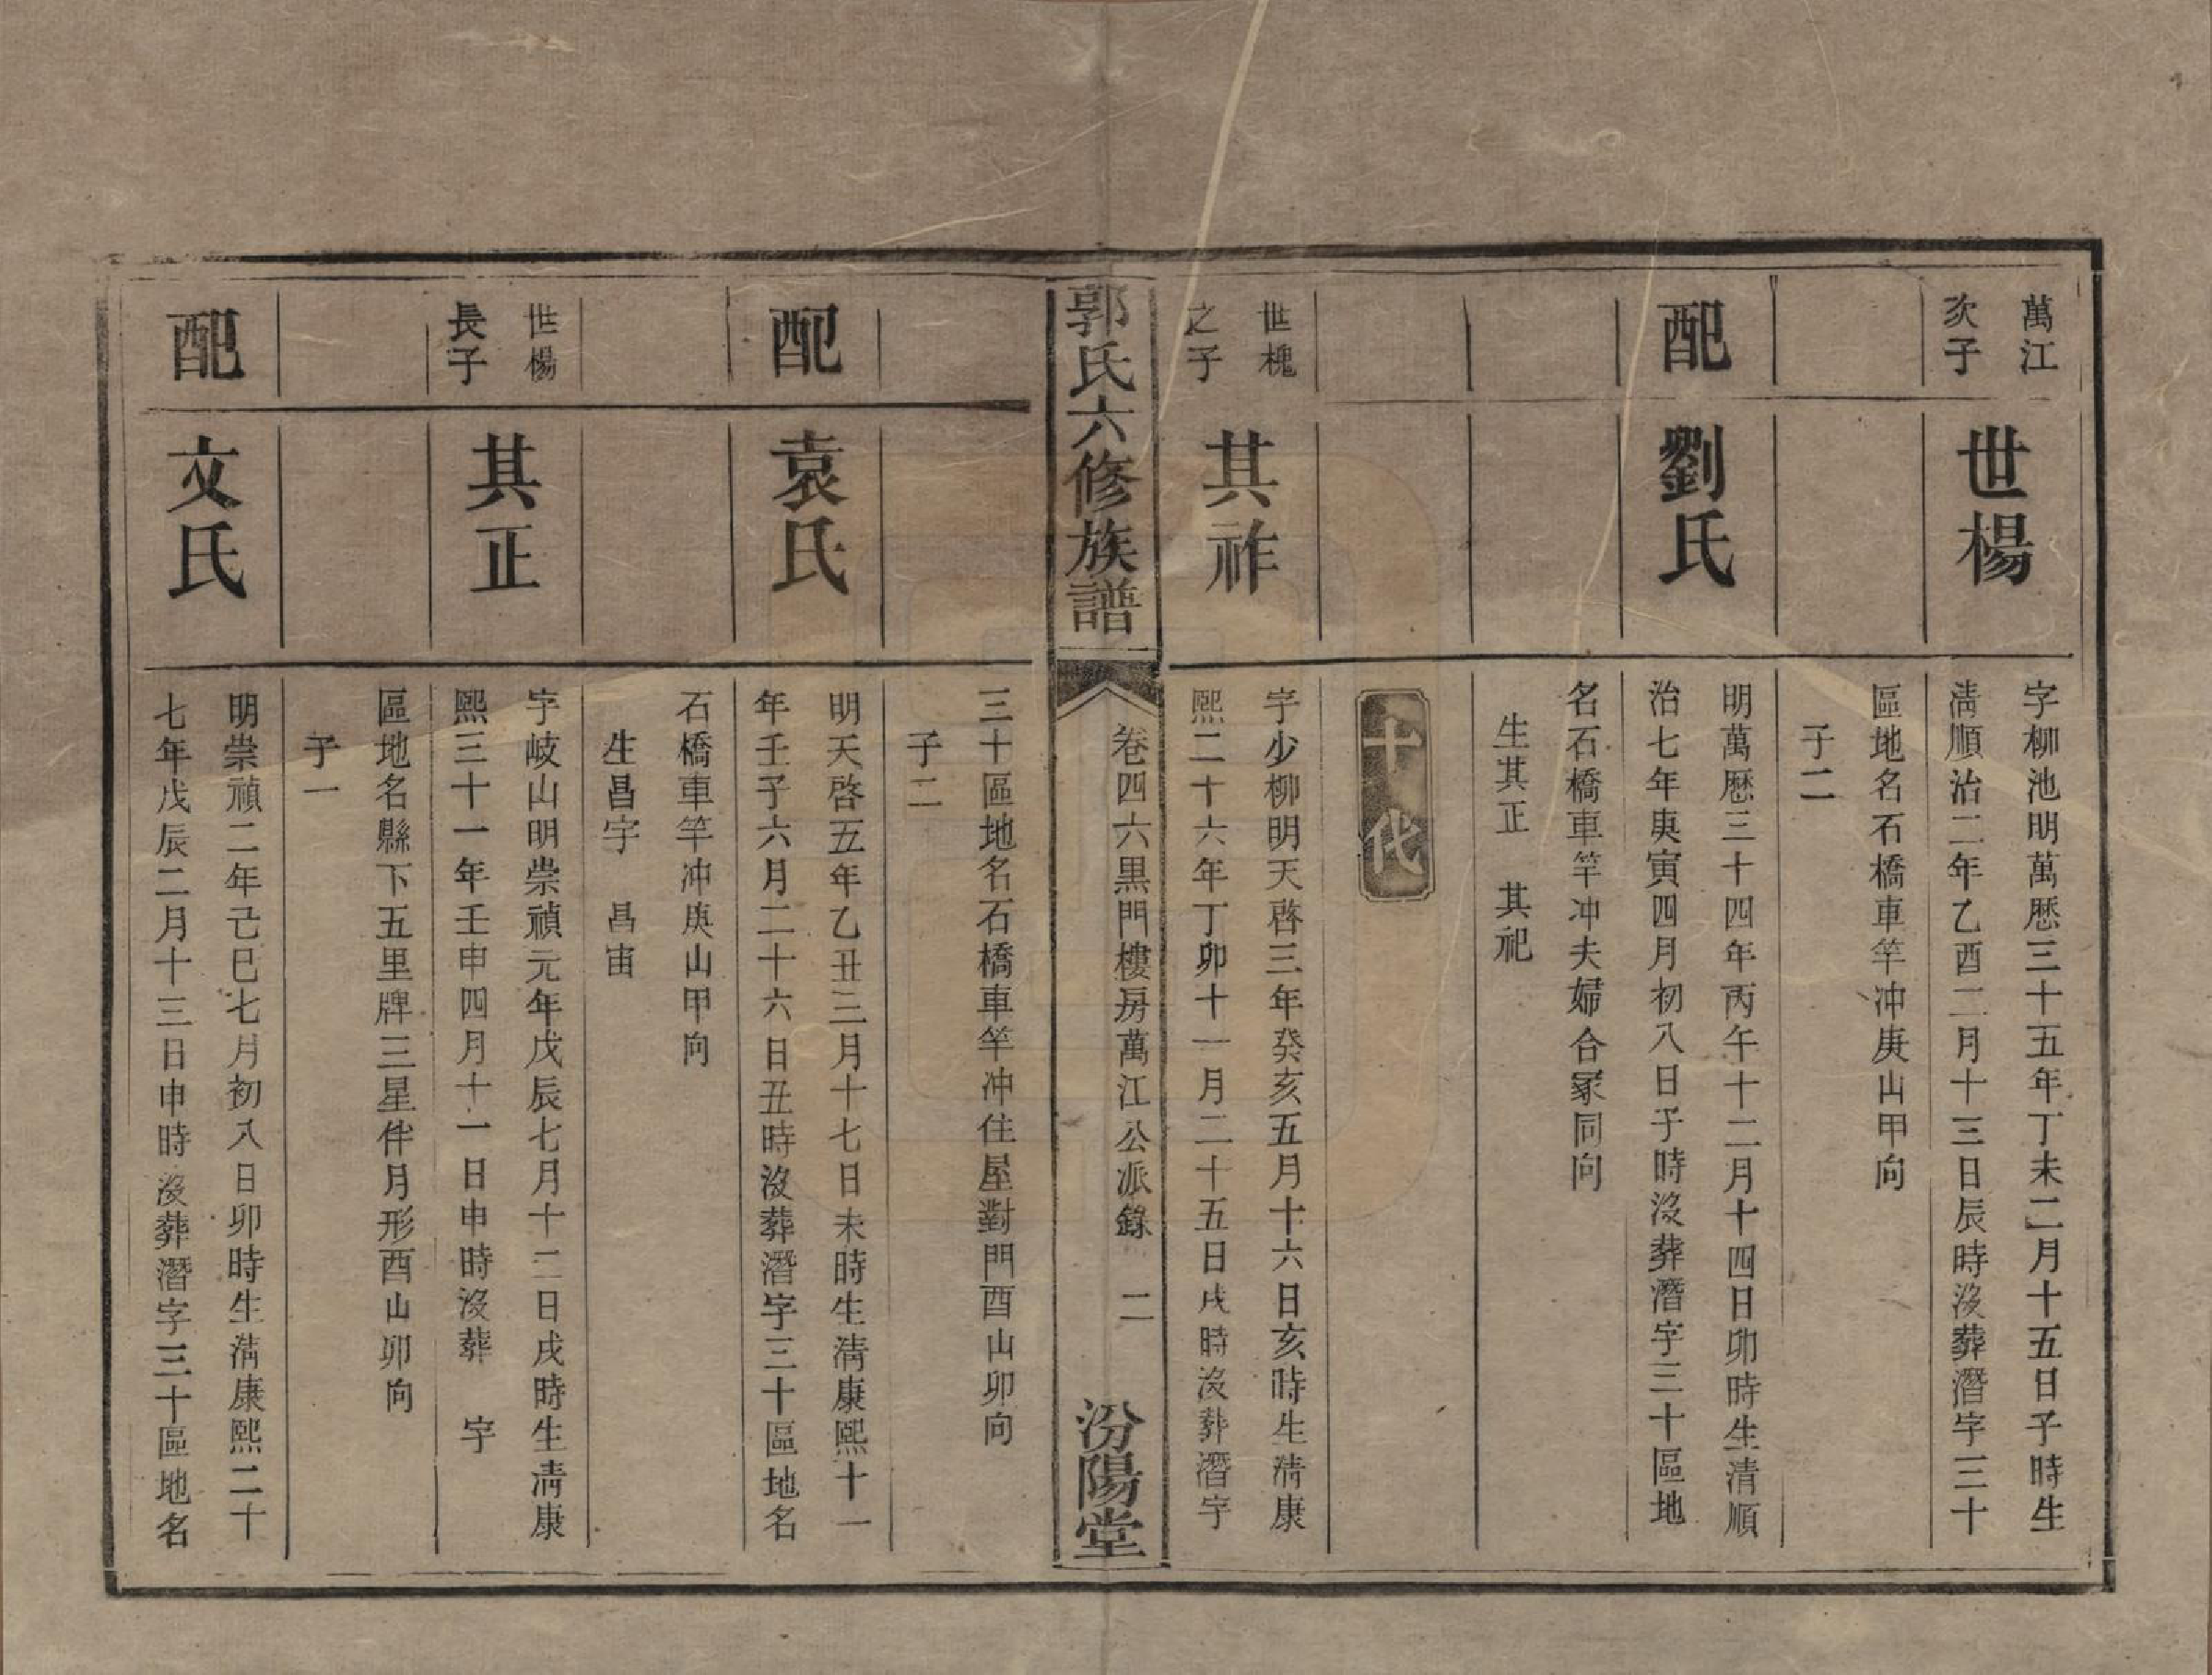 萬江
次子
世楊
字柳池明萬歷三十五年丁未二月十五日子時生
清順治二年乙酉二月十三日辰時沒葬潛字三十
區地名石橋車竿冲庚山甲向
子二
配
劉氏
明萬歷三十四年丙午十二月十四日卯時生清順
治七年庚寅四月初八日子時沒葬潛字三十區地
名石橋車竿冲夫婦合冢同向
生其正 其祀
十代
世槐
之子
其祚
字少柳明天啓三年癸亥五月十六日亥時生清康
熙二十六年丁卯十一月二十五日戌時沒葬潛字
郭氏六修族譜
卷四六黑門樓房萬江公派錄 二
汾陽堂
三十區地名石橋車竿冲住屋對門酉山卯向
子二
配
袁氏
明天啓五年乙丑三月十七日未時生清康熙十一
年壬子六月二十六日丑時沒葬潛字三十區地名
石橋車竿冲庚山甲向
生昌宇 昌宙
世楊
長子
其正
字岐山明崇禎元年戊辰七月十二日戌時生清康
熙三十一年壬申四月十一日申時沒葬 字
區地名縣下五里牌三星伴月形酉山卯向
子一
配
文氏
明崇禎二年己巳七月初八日卯時生清康熙二十
七年戊辰二月十三日申時沒葬潛字三十區地名